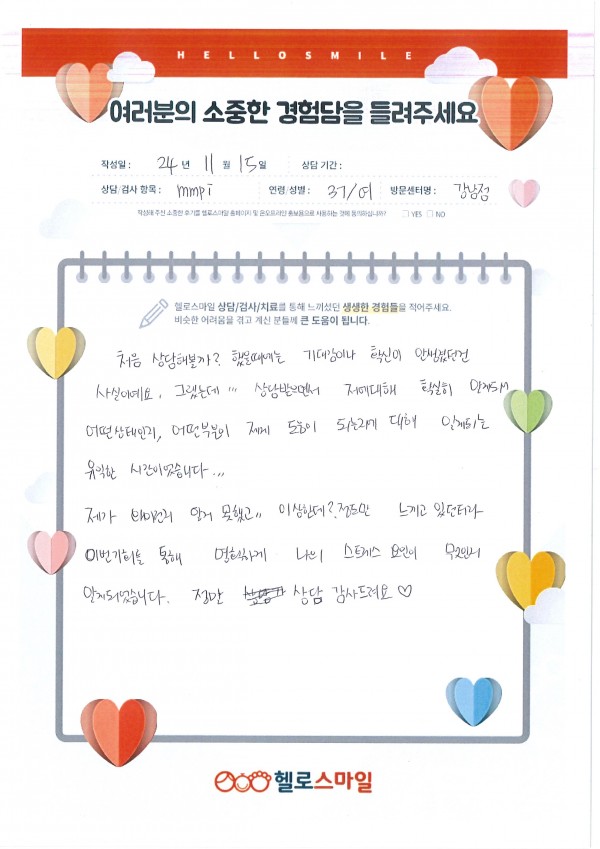 HELLOSMILE
여러분의 소중한 경험담을 들려주세요
작성일 : 24 년 11 월 15 일 상담 기간 :
상담/검사 항목 : mmpi 연령/성별 : 37/여 방문센터명 : 강남점
작성해 주신 소중한 후기를 헬로스마일 홈페이지 및 온오프라인 홍보용으로 사용하는 것에 동의하십니까? YES NO
헬로스마일 상담/검사/치료를 통해 느끼셨던 생생한 경험들을 적어주세요.
비슷한 어려움을 겪고 계신 분들께 큰 도움이 됩니다.
처음 상담해볼까? 했을때에는 기대감이나 확신이 안생겼던건
사실이예요. 그랬는데 ... 상담받으면서 저에대해 확실히 알게되며
어떤상태인지, 어떤부분이 제게 도움이 되는지에 대해 알게되는
유익한 시간이었습니다...
제가 왜이런지 알지 못했고.. 이상한데? 정도만 느끼고 있던터라
이번기회를 통해 명확하게 나의 스트레스 요인이 무엇인지
알게되었습니다. 정말 상담 감사드려요 ♡
헬로스마일